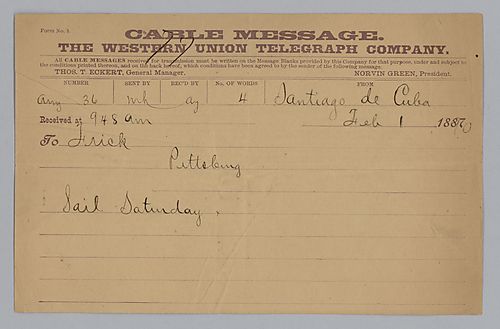 Form No. 1.
CABLE MESSAGE.
THE WESTERN UNION TELEGRAPH COMPANY.
All CABLE MESSAGES received for transmission must be written on the Message Blanks provided by this Company for that purpose, under and subject to
the conditions printed thereon, and on the back hereof, which conditions have been agreed to by the sender of the following message.
THOS. T. ECKERT, General Manager. NORVIN GREEN, President.
NUMBER SENT BY REC'D BY NO. OF WORDS FROM
36 4 Santiago de Cuba
Received at 948 am Feb 1 188
To Frick
Pittsburg
Sail Saturday.